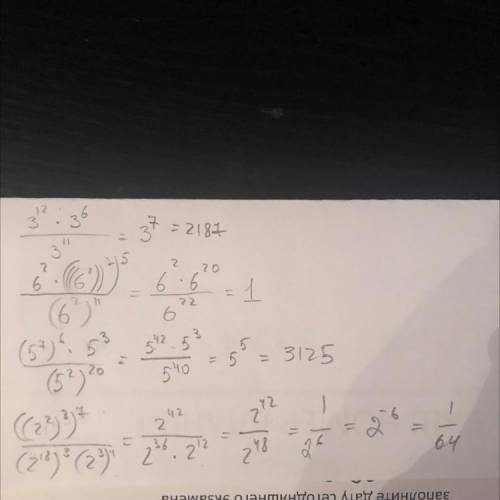 \frac{3^{12} \cdot 3^{6}}{3^{11}} = 3^{7} = 2187
\frac{6^{2} \cdot (((6^{2}))^{2})^{5}}{(6^{2})^{11}} = \frac{6^{2} \cdot 6^{20}}{6^{22}} = 1
\frac{(5^{7})^{6} \cdot 5^{3}}{(5^{2})^{20}} = \frac{5^{42} \cdot 5^{3}}{5^{40}} = 5^{5} = 3125
\frac{((2^{2})^{3})^{7}}{(2^{18})^{3} (2^{3})^{4}} = \frac{2^{42}}{2^{36} \cdot 2^{12}} = \frac{2^{42}}{2^{48}} = \frac{1}{2^{6}} = 2^{-6} = \frac{1}{64}
заполните дату сегодняшнего экзамена